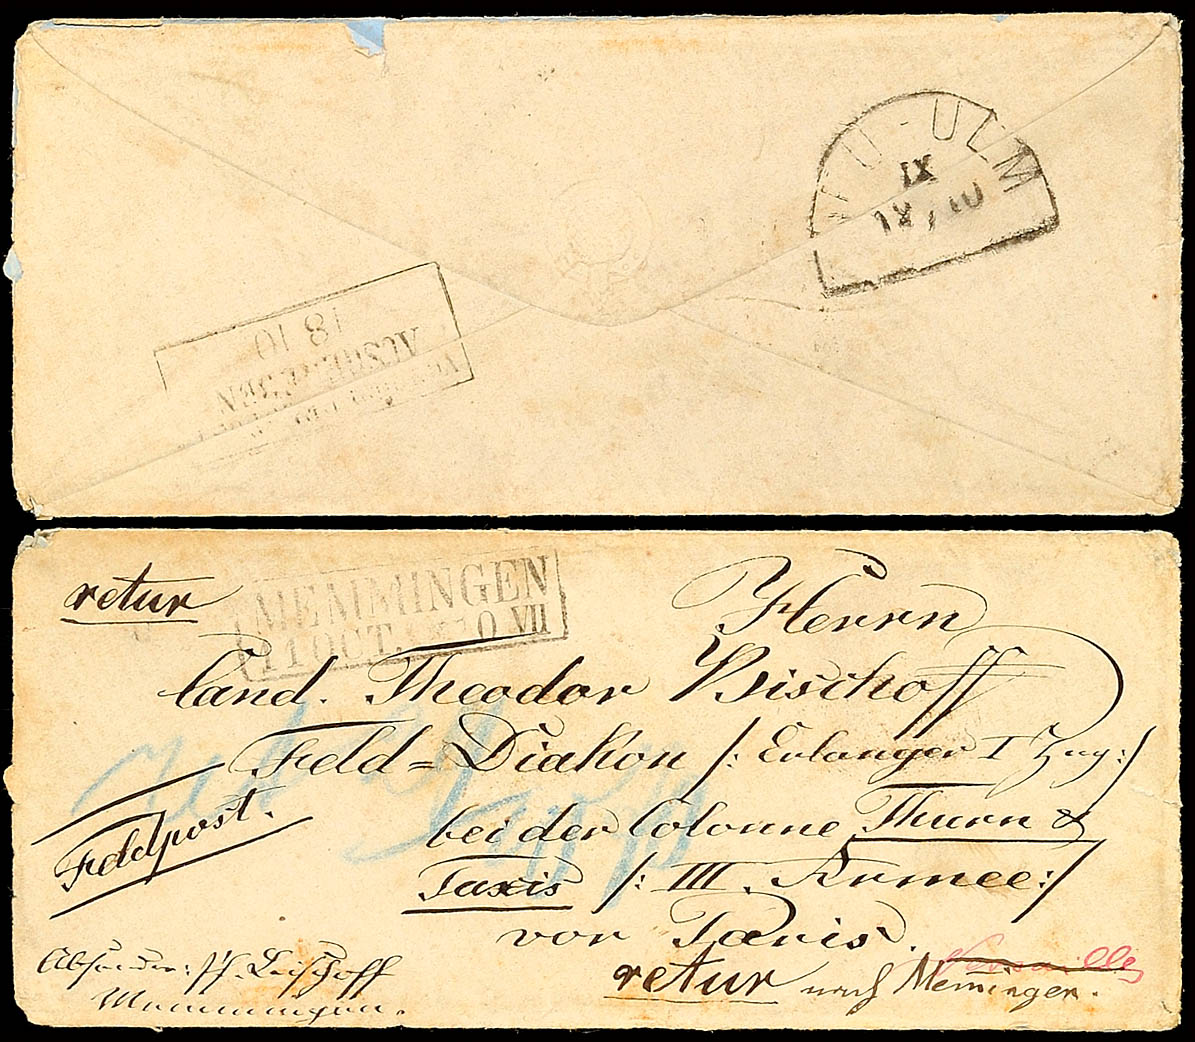 NEU-ULM
IX
18 10
18 10
AUSGEGEBEN
retur
MEMMINGEN
11 OCT. VII
Herrn
Cand. Theodor Bischoff
Feld=Diakon /: Erlanger I Zug :/
bei der Colonne Thurn &
Taxis /: III. Armee :/
vor Paris.
Feldpost.
Absender: Pf. Bischoff
Memmingen.
Versailles
retur nach Memmingen.